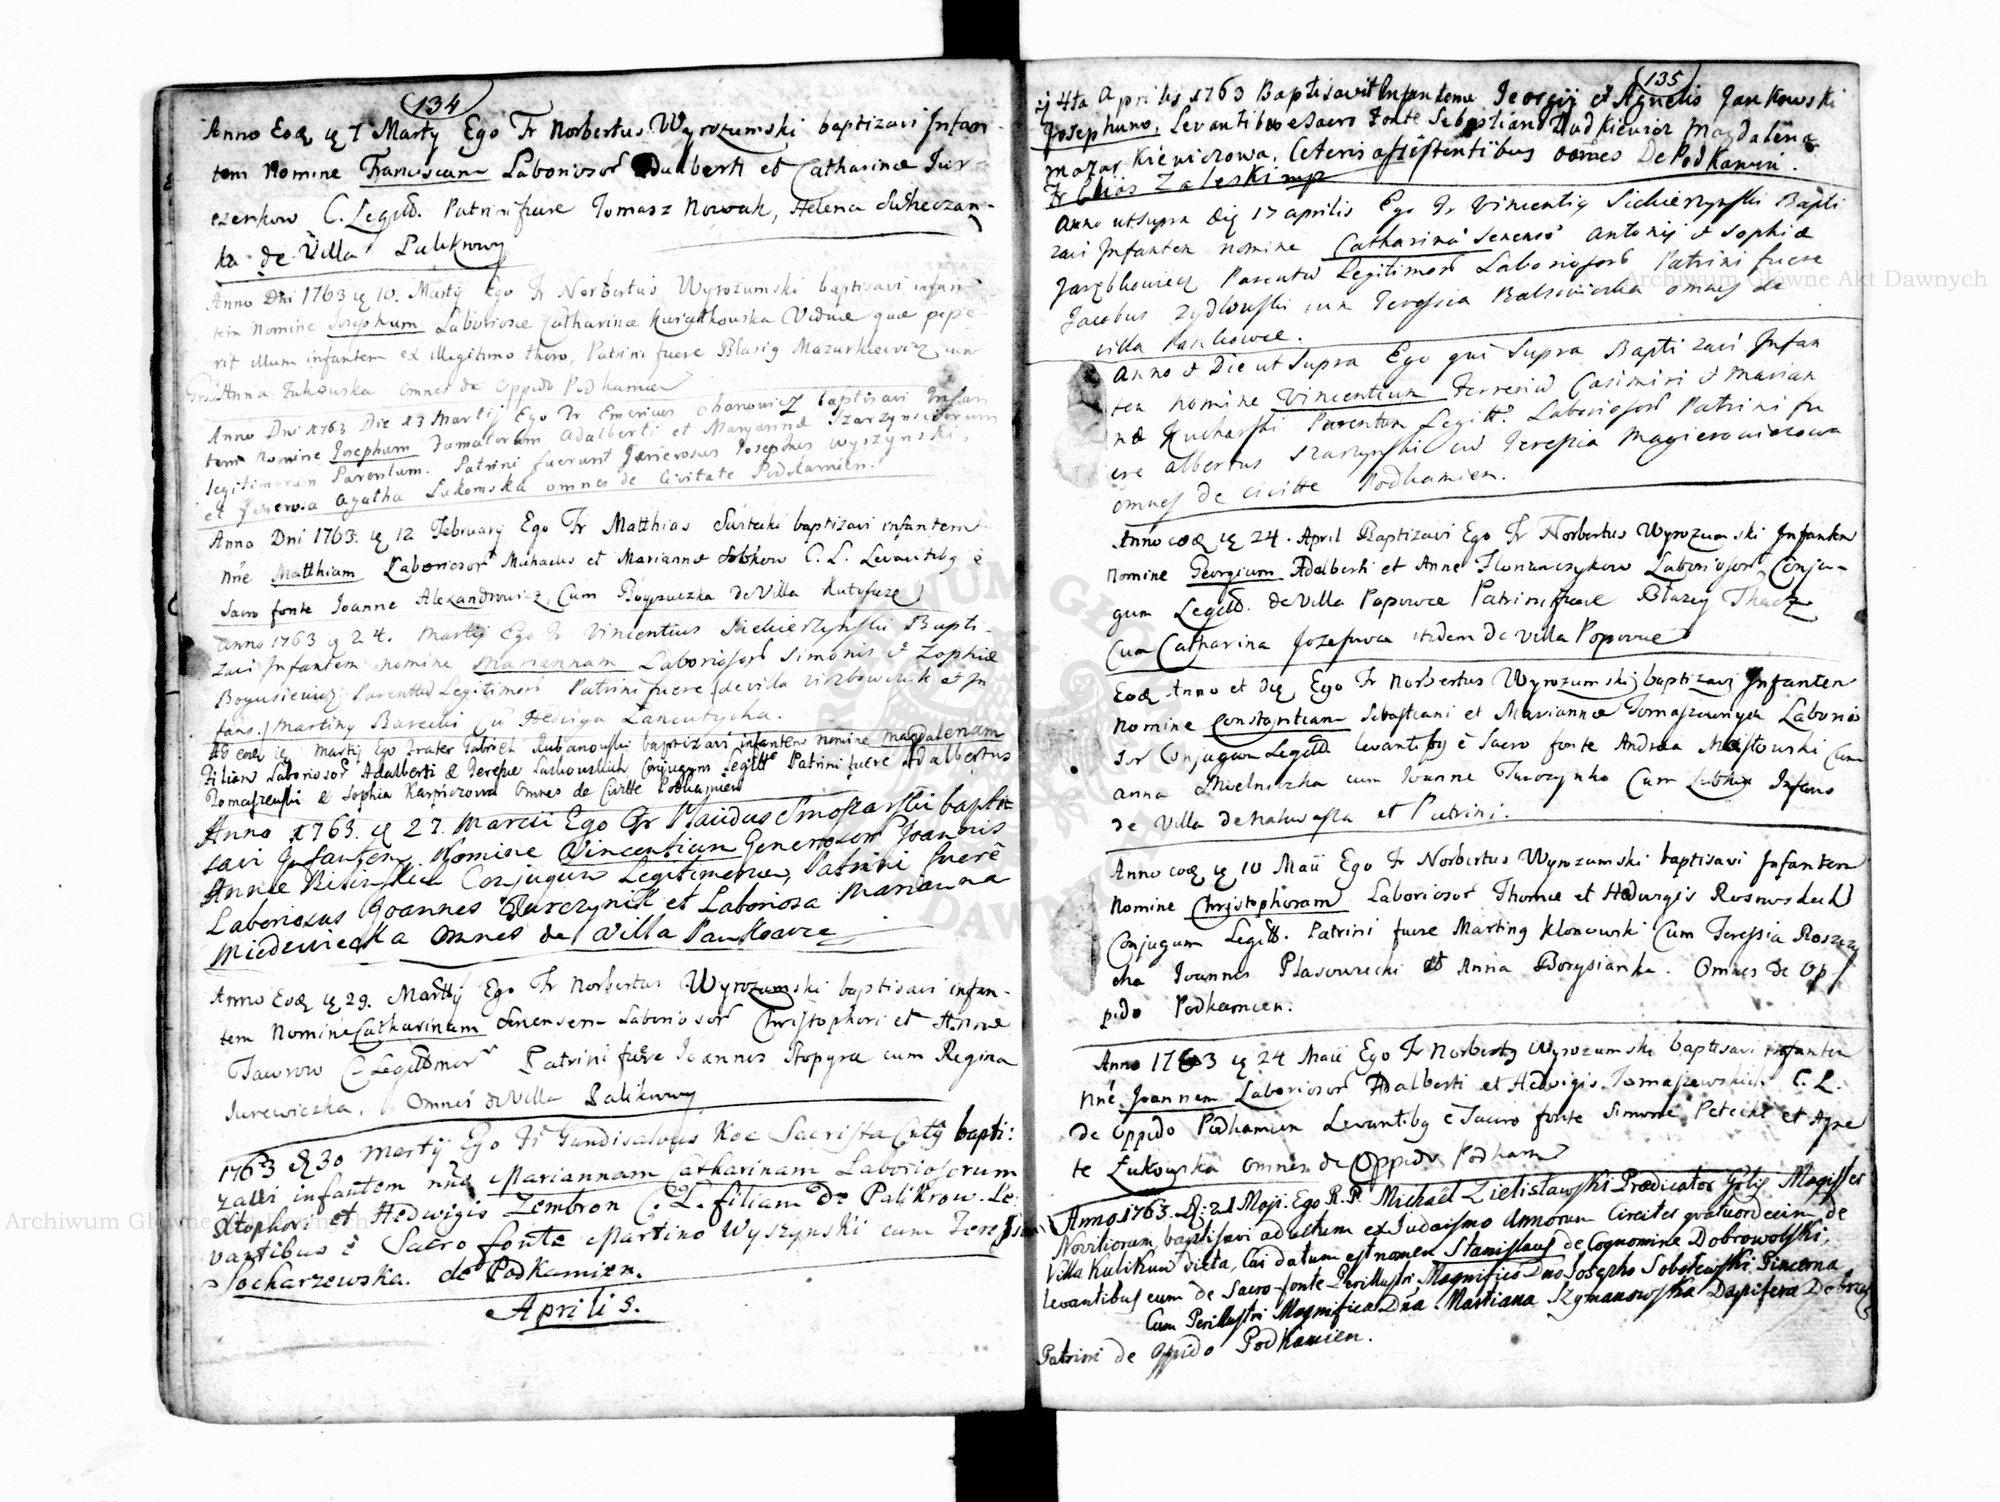 134
Anno Eod. 7 Martij Ego Fr Norbertus Wyrozumski baptizavi Infan-
tem Nomine Franciscum Laboriosor Adalberti et Catharinae Jur-
czenkow C. Legitt. Patrini fuere Tomasz Nowak, Helena
ka de Villa Palikrowy
Anno Dni 1763 10. Martij Ego Fr Norbertus Wyrozumski baptisavi infan
tem Nomine Josephum Laboriosae Catharinae Kwiatkowska Viduae quae pepe-
rit illum infantem ex illegitimo thoro, Patrini fuere Blasig Mazurkiewicz cum
Anna Zukowska omnes de Oppido Podkamien
Anno Dni 1763 Die 13 Martij Ego Fr Emericus Ohanowicz baptisavi Infan
tem Nomine Josephum Famatorum Adalberti et Maryannae Szarzynsciorum
legitimorum Parentum. Patrini fuerunt Generosus Josephus Wyszynski,
et Generosa Agatha Lukomska omnes de Civitate Podkamien.
Anno Dni 1763. 12 February Ego Fr Matthias baptizavi infantem
nne Matthiam Laboriosor Michaelis et Mariannae Sobkow C. L. Levantibg è
Sacro fonte Joanne Alexandrowicz, Cum de Villa
Anno 1763 24. Martij Ego Fr Vincentius Sickierzynski Bapti-
zavi Infantem nomine Mariannam Laboriosor Simonis et Zophiae
Bogusiewicz Parentum Legitimor Patrini fuere de villa et In
fans. Martiny Barecki Cu Hedviga Lancutycka.
Ad eod. Martij Ego Frater Gabriel Rubanowski baptizavi infantem nomine Magdalenam
Filiam Laboriosor Adalberti & Teresiae Conjugum Legitt Patrini fuere Adalbertus
Tomaszewski & Sophia Karpiczowa Omnes de Civitte Podkamien
Anno 1763. 27. Marcii Ego Fr Placidus bapti-
savi Infantem Nomine Vincentium Generosor Joannis
Annae Conjugum Legitimorum, Patrini fuerè
Laboriosus Joannes Jurczynik et Laboriosa Marianna
Miedwiecka Omnes de Villa Pankowce
Anno Eod 29. Martij Ego Fr Norbertus Wyrozumski baptisavi infan-
tem Nomine Catharinam Senensem Laboriosor Christophori et Annae
Tawrow C Legittimor Patrini fuere Joannes Stopyra cum Regina
Jurewiczka. Omnes de Villa Palikrowy
1763 30 Martij Ego Fr Gundisalvus Koc Sacrista bapti:
zavi infantem nne Mariannam Catharinam Laboriosorum
Xtophori et Hedwigis Zembron C. L. filiam de Palikrow. Le:
vantibus è Sacro fonte Martino Wyszynski cum Teressia
Socharzewska. de Podkamien.
Aprilis.
135
4ta Aprilis 1763 Baptisavit Infantem Georgij et Agnetis Jankowski
Josephum, Levantibus e Sacro Fonte Sebastiano Dudkiewicz Magdalena
Mazurkiewiczowa, Ceteris assistentibus omnes De Podkamien.
Fr Elias Zaleski mp
Anno ut supra die 17 aprilis Ego Fr Vincentig Sickierzynski Bapti
zavi Infantem nomine Catharina Senens Antonij et Sophiae
Parentu Legitimor Laboriosor Patrini fuere
Jacobus Zydlowski cum Teressia omnes de
villa Pankowce.
Anno & Die ut Supra Ego qui Supra Baptizavi Infan
tem Nomine Vincentium Casimiri & Marian
nae Kucharski Parentum Legitt. Laboriosor Patrini fu
ere Albertus Szarzynski cu Teressia Magierowiczowa
omnes de civitte Podkamien.
Anno eod 24. April Baptizavi Ego Fr Norbertus Wyrozumski Infantem
nomine Georgium Adalberti et Anne Laboriosor Conju-
gum Legitt. de Villa Popowce Patrini fuere Blazey Tkacz
Cum Catharina Jozefowa itidem de Villa Popowce
Eod. Anno et die Ego Fr Norbertus Wyrozumskij baptizavi Infantem
Nomine Constantiam Sebastiani et Mariannae Tomaszewnych Laborio
sor Conjugum Legitt levantibg è Sacro fonte Andrea Cum
Anna Mielniczka cum Joanne Cum Infans
de Villa de et Patrini.
Anno eod 10 Maii Ego Fr Norbertus Wyrozumski baptisavi Infantem
Nomine Christophorum Laboriosor Thomae et Hedwigis
Conjugum Legitt. Patrini fuere Marting Klonowski Cum Teressia
cka Joannes et Anna Borysianka. Omnes de Op
pido Podkamien.
Anno 1763 24 Maii Ego Fr Norbertg Wyrozumski baptisavi infantem
Nne Joannem Laboriosor Adalberti et Hedwigis Tomaszewskich C. L.
de Oppido Podkamien Levantibg e Sacro fonte Simone Petecki et Agne
te Zukowska omnes de Oppido Podkam
Anno 1763. D. 21 Maji. Ego R. P. Michaël Zielislawski Praedicator Magister
Novitiorum, baptisavi adultum ex Judaismo Annorum Circiter quatuordecim de
Villa Kulikuw dicta, Cui datum est nomen Stanislaus de Cognomine Dobrowolski,
levantibus eum de Sacro-fonte Perillustri Magnifico Dno Josepho Sobolewski Pincerna
Cum Perillustri Magnifica Dna Martiana Szymanowska Dapifera
Patrini de Oppido Podkamien.
Archiwum Główne Akt Dawnych